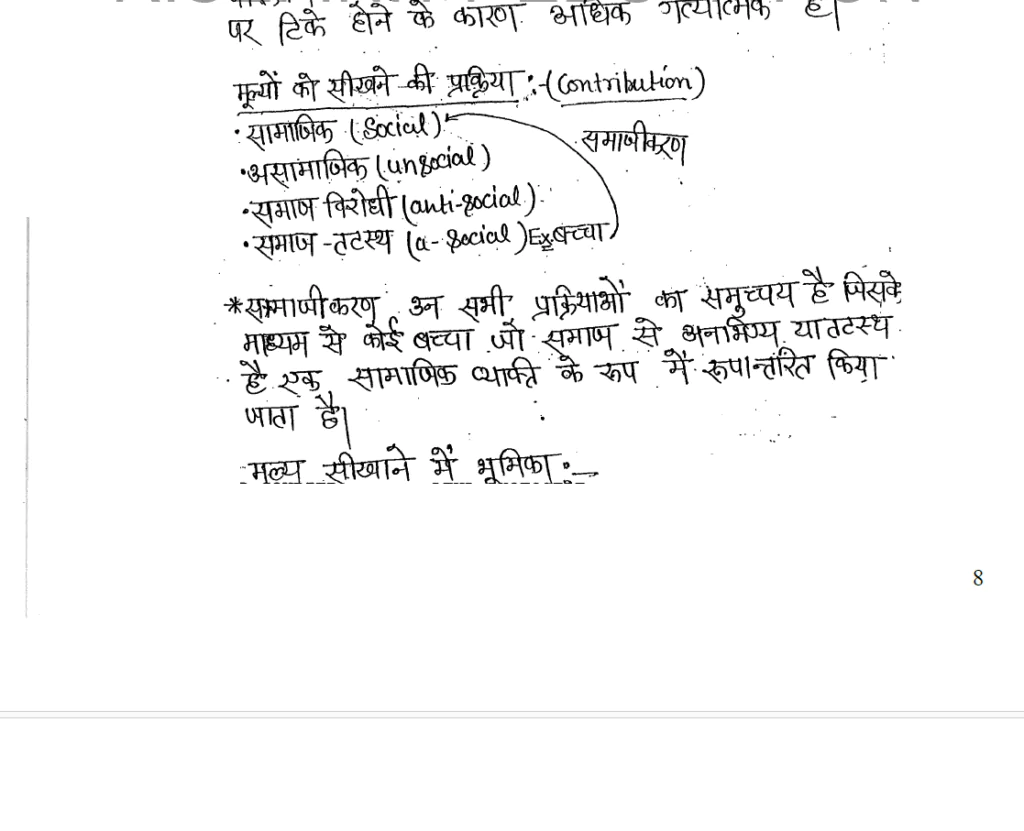 पर टिके होने के कारण अधिक गत्यात्मक है।
मूल्यों को सीखने की प्रक्रिया :-(Contribution)
• सामाजिक (Social)
समाजीकरण
• असामाजिक (unsocial)
• समाज विरोधी (anti-social)
• समाज-तटस्थ (a-social) Ex बच्चा
*समाजीकरण उन सभी प्रक्रियाओं का समुच्चय है जिसके
माध्यम से कोई बच्चा जो समाज से अनभिग्य या तटस्थ
है एक सामाजिक व्यक्ति के रूप में रूपान्तरित किया
जाता है।
मूल्य सीखाने में भूमिका :-
8